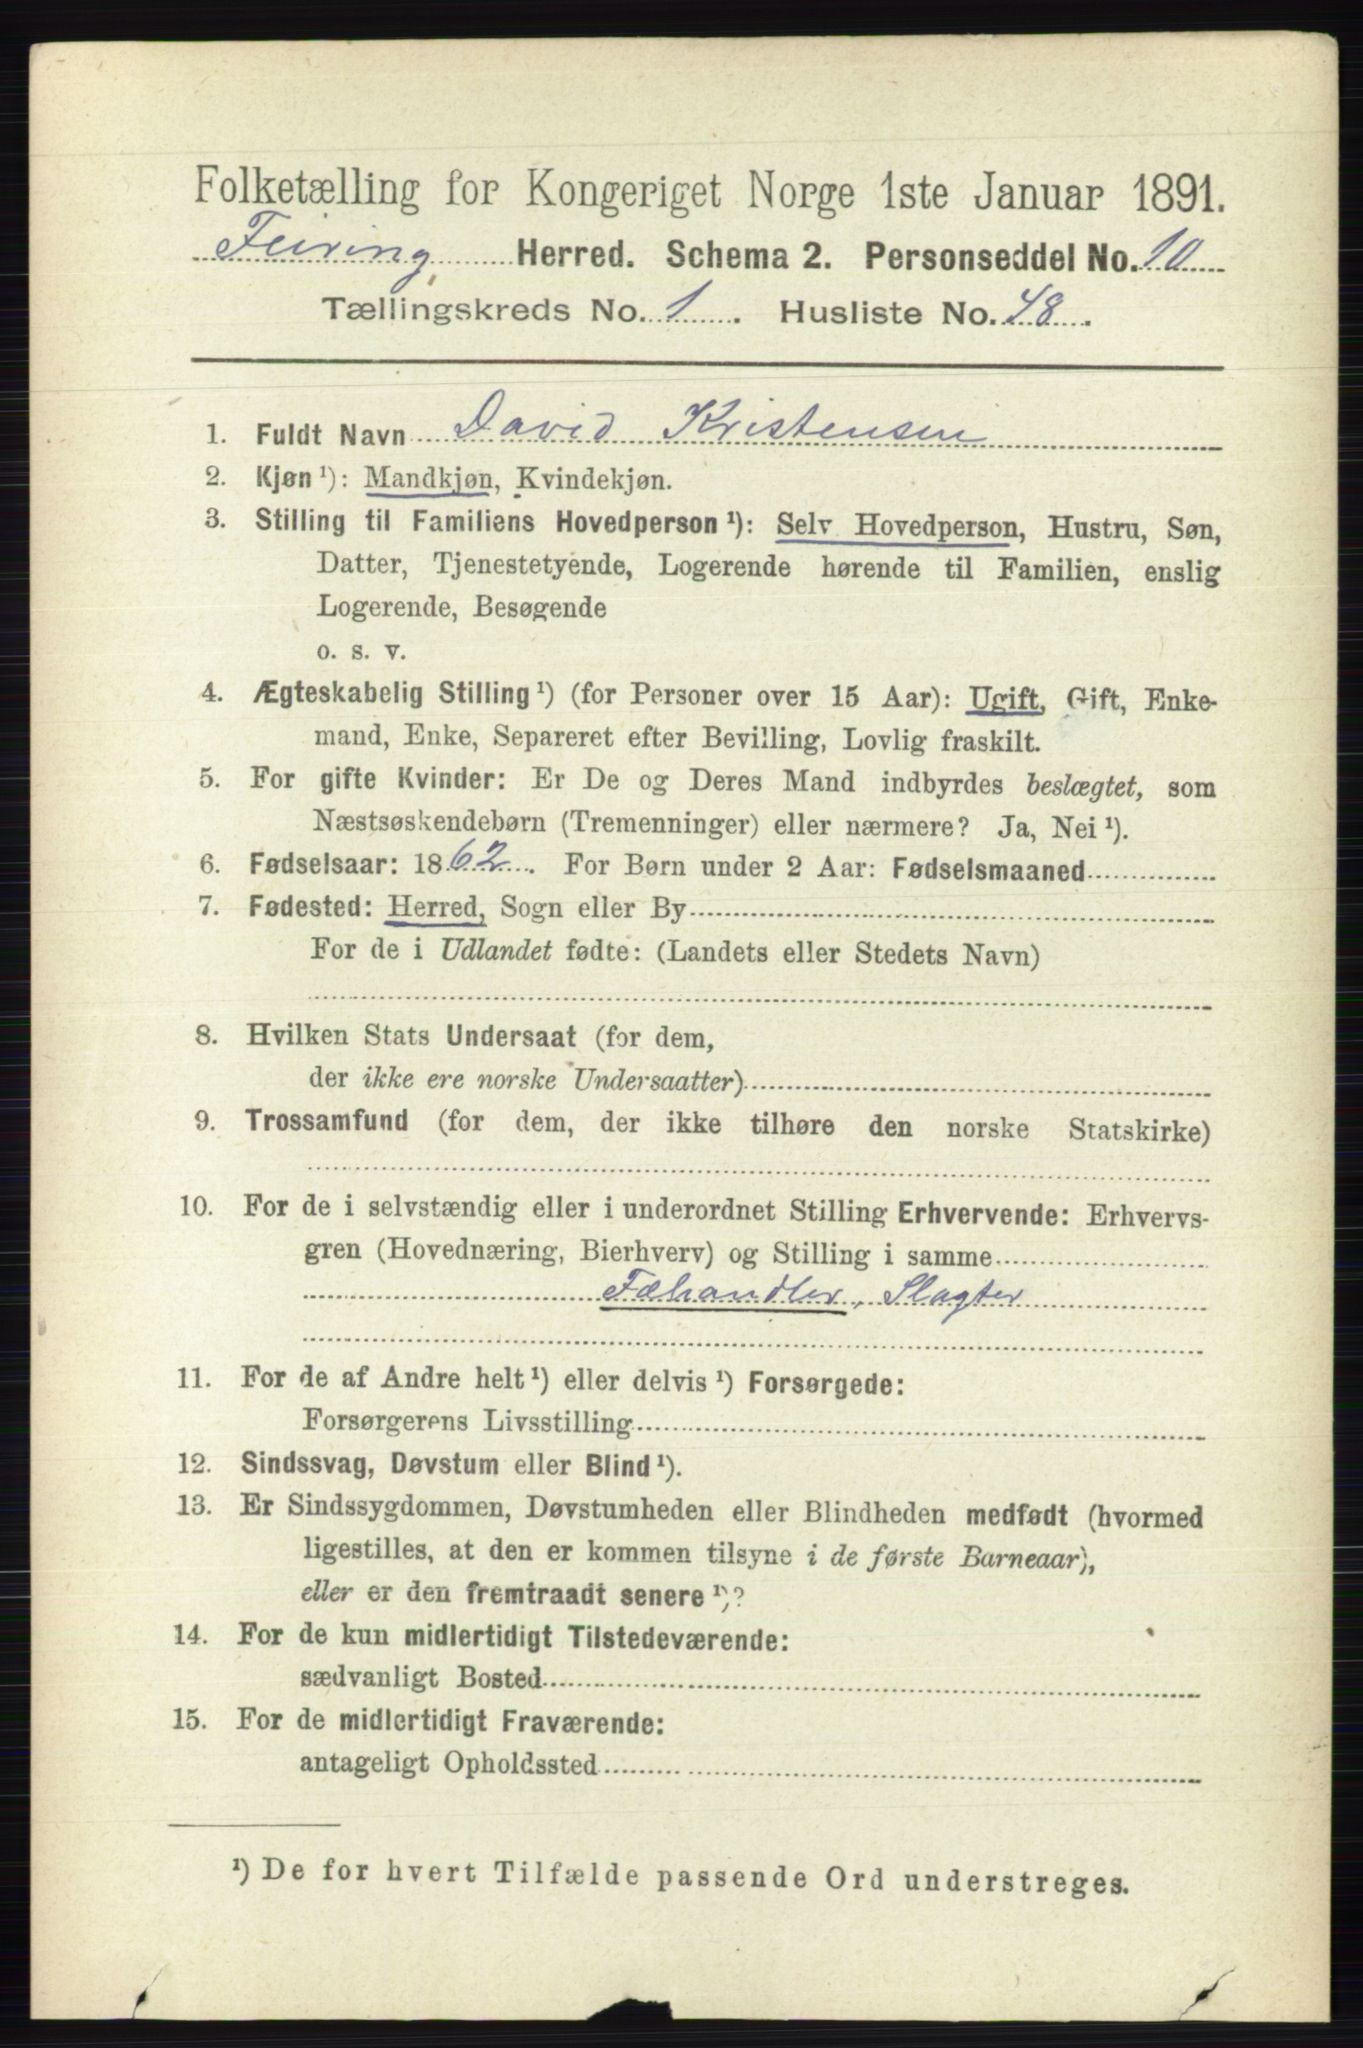 Folketælling for Kongeriget Norge 1ste Januar 1891.
Feiring Herred. Schema 2. Personseddel No. 10
Tællingskreds No. 1. Husliste No. 48.
1. Fuldt Navn David Kristensen
2. Kjøn ¹): Mandkjøn, Kvindekjøn.
3. Stilling til Familiens Hovedperson ¹): Selv Hovedperson, Hustru, Søn,
Datter, Tjenestetyende, Logerende hørende til Familien, enslig
Logerende, Besøgende
o. s. v.
4. Ægteskabelig Stilling ¹) (for Personer over 15 Aar): Ugift, Gift, Enke-
mand, Enke, Separeret efter Bevilling, Lovlig fraskilt.
5. For gifte Kvinder: Er De og Deres Mand indbyrdes beslægtet, som
Næstsøskendebørn (Tremenninger) eller nærmere? Ja, Nei ¹).
6. Fødselsaar: 1862. For Børn under 2 Aar: Fødselsmaaned
7. Fødested: Herred, Sogn eller By
For de i Udlandet fødte: (Landets eller Stedets Navn)
8. Hvilken Stats Undersaat (for dem,
der ikke ere norske Undersaatter)
9. Trossamfund (for dem, der ikke tilhøre den norske Statskirke)
10. For de i selvstændig eller i underordnet Stilling Erhvervende: Erhvervs-
gren (Hovednæring, Bierhverv) og Stilling i samme
Fæhandler, Slagter
11. For de af Andre helt ¹) eller delvis ¹) Forsørgede:
Forsørgerens Livsstilling
12. Sindssvag, Døvstum eller Blind ¹).
13. Er Sindssygdommen, Døvstumheden eller Blindheden medfødt (hvormed
ligestilles, at den er kommen tilsyne i de første Barneaar),
eller er den fremtraadt senere ¹)?
14. For de kun midlertidigt Tilstedeværende:
sædvanligt Bosted
15. For de midlertidigt Fraværende:
antageligt Opholdssted
¹) De for hvert Tilfælde passende Ord understreges.